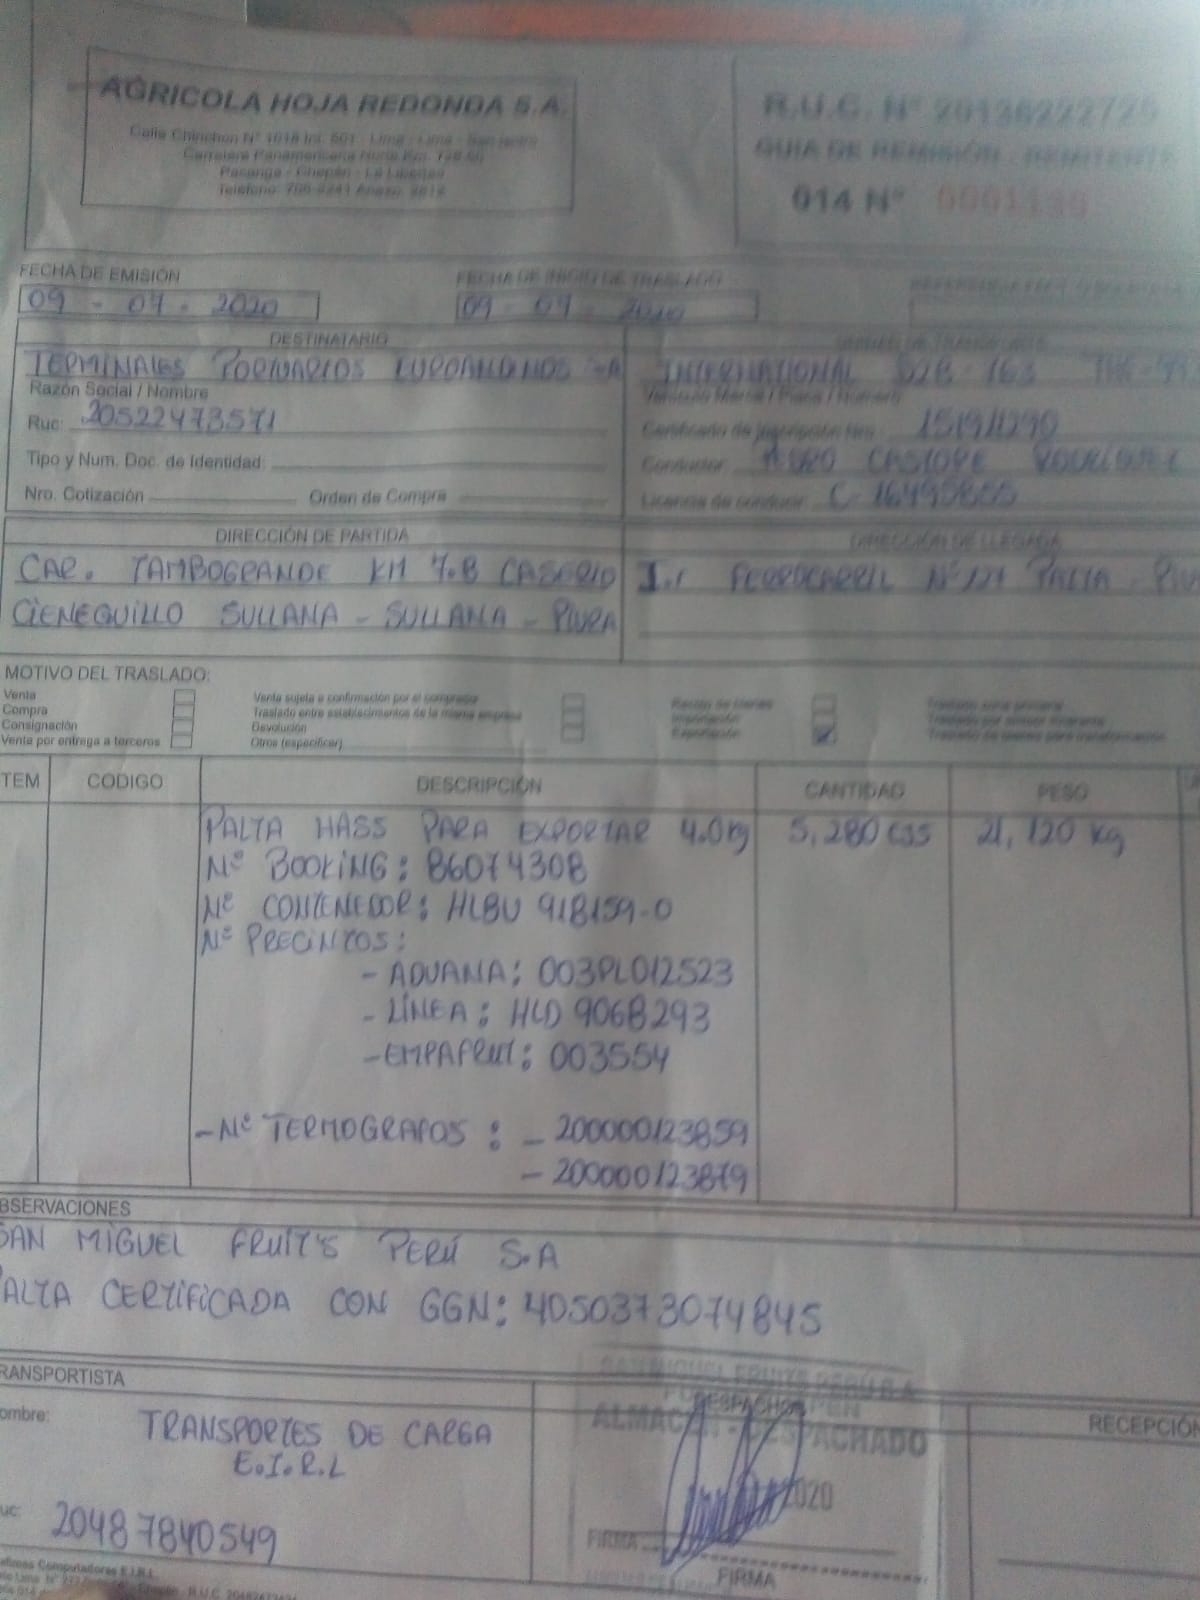 AGRICOLA HOJA REDONDA S.A.
Calle Chinchon N° 1018 Int. 501 - Lima - Lima - San Isidro
Carretera Panamericana Norte Km.
Pacanga - Chepén - La Libertad
Teléfono:
R.U.C. N° 20136222725
GUIA DE REMISIÓN - REMITENTE
014 N°
FECHA DE EMISIÓN
09 - 07 - 2020
FECHA DE INICIO DE TRASLADO
09 - 07 - 2020
DESTINATARIO
TERMINALES PORTUARIOS EUROANDINOS SA
Razón Social / Nombre
Ruc: 20522473571
Tipo y Num. Doc. de Identidad:
Nro. Cotización
Orden de Compra
UNIDAD DE TRANSPORTE
INTERNATIONAL
Vehículo Marca / Placa / Número
Certificado de Inscripción Nro.:
Conductor:
Licencia de conducir:
DIRECCIÓN DE PARTIDA
CAR. TAMBOGRANDE KM 7.8 CASERIO
CIENEGUILLO SULLANA - SULLANA - PIURA
DIRECCIÓN DE LLEGADA
FERROCARRIL N° 127 PAITA -
MOTIVO DEL TRASLADO:
Venta
Compra
Consignación
Venta por entrega a terceros
Venta sujeta a confirmación por el comprador
Traslado entre establecimientos de la misma empresa
Devolución
Otros (especificar)
Recojo de bienes
Importación
Exportación
Traslado zona primaria
Traslado por emisor itinerante
Traslado de bienes para transformación
TEM
CODIGO
DESCRIPCIÓN
CANTIDAD
PESO
PALTA HASS PARA EXPORTAR 4.0kg
5,280 CJS
21,120 kg
N° BOOKING: 86074308
N° CONTENEDOR: HLBU 918159-0
N° PRECINTOS:
- ADUANA: 003PL012523
- LÍNEA: HLD 9068293
- EMPAFRUT: 003554
- N° TERMOGRAFOS : - 200000123859
- 200000123879
BSERVACIONES
SAN MIGUEL FRUIT'S PERÚ S.A
PALTA CERTIFICADA CON GGN: 4050373074845
RANSPORTISTA
ombre:
TRANSPORTES DE CARGA
E.I.R.L
uc: 20487840549
SAN MIGUEL FRUITS PERÚ S.A
DESPACHO
ALMACEN - DESPACHADO
2020
FIRMA
FIRMA
RECEPCIÓN